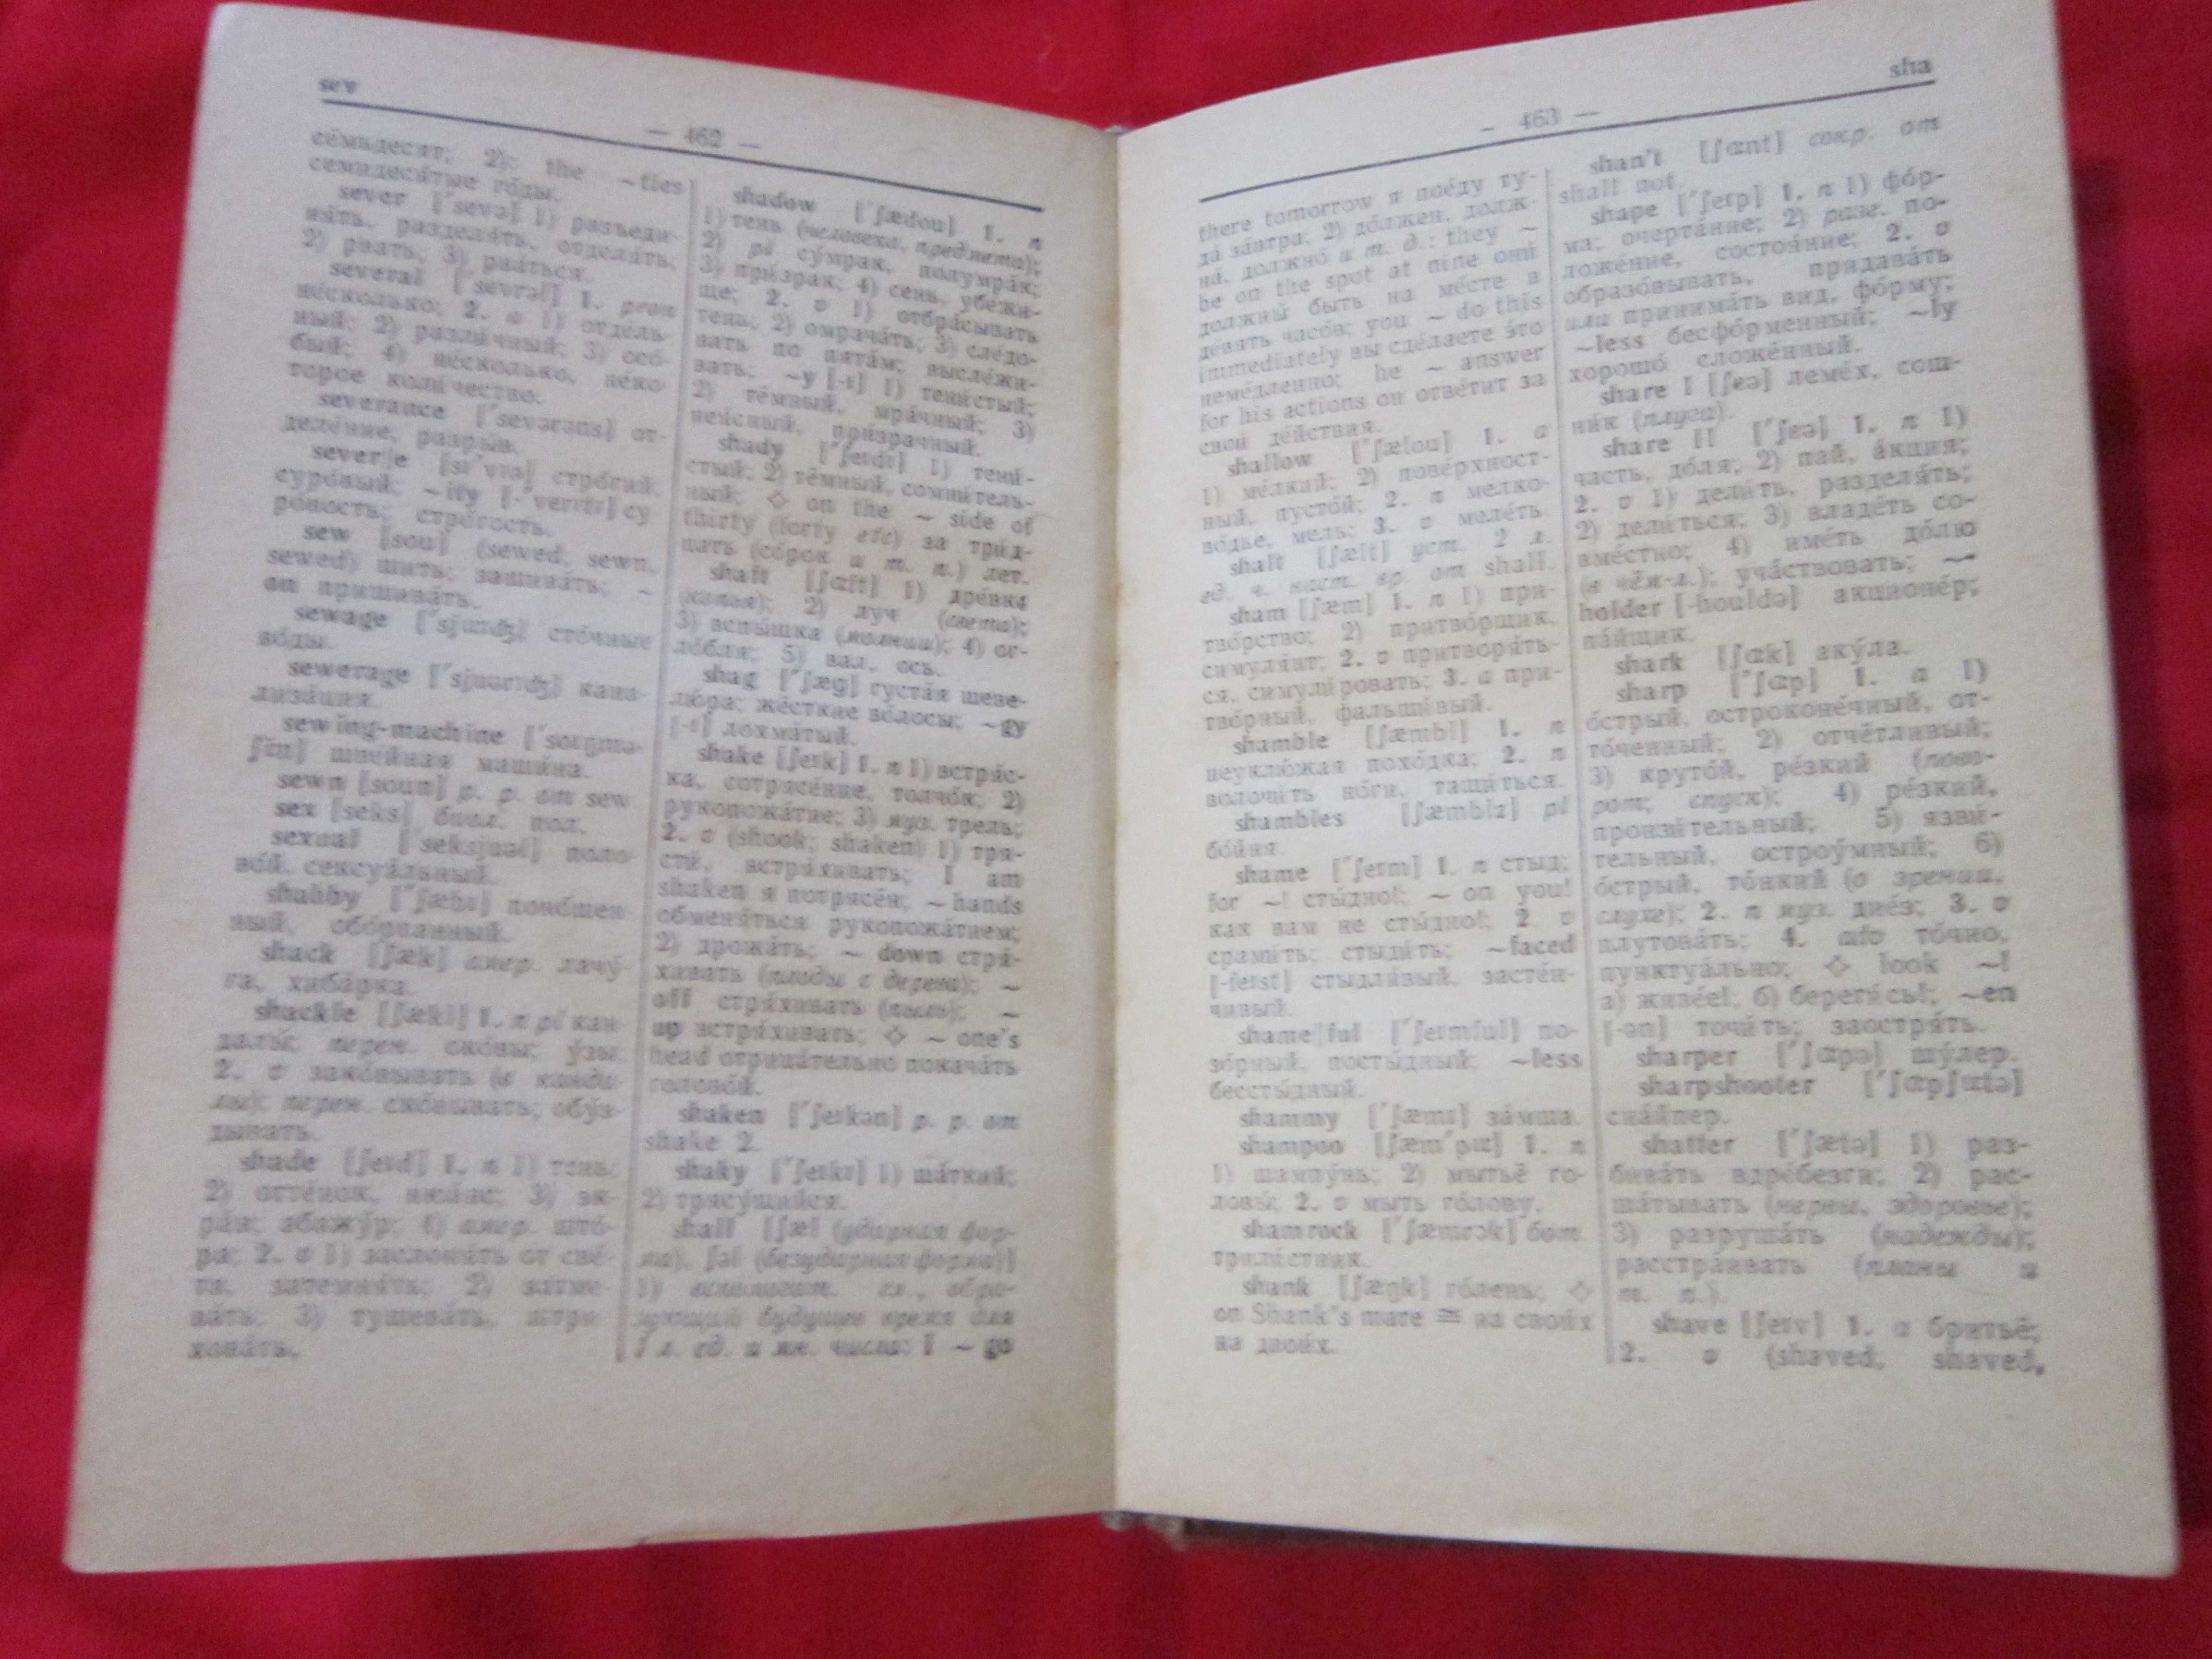 sev
— 462 —
се́мьдесят; 2): the ~ties
семидеся́тые го́ды.
sever [ˈsevə] 1) разъеди-
ня́ть, разделя́ть, отделя́ть;
2) рвать; 3) рва́ться.
several [ˈsevrəl] 1. pron
не́сколько; 2. a 1) отде́ль-
ный; 2) разли́чный; 3) осо́-
бый; 4) не́сколько, не́ко-
торое коли́чество.
severance [ˈsevərəns] от-
деле́ние, разры́в.
sever||e [sɪˈvɪə] стро́гий,
суро́вый; ~ity [-ˈverɪtɪ] су-
ро́вость; стро́гость.
sew [sou] (sewed; sewn,
sewed) шить; зашива́ть; ~
on пришива́ть.
sewage [ˈsjuɪdʒ] сто́чные
во́ды.
sewerage [ˈsjuərɪdʒ] кана-
лиза́ция.
sewing-machine [ˈsouɪŋmə-
ʃin] шве́йная маши́на.
sewn [soun] p. p. от sew
sex [seks] биол. пол.
sexual [ˈseksjuəl] поло-
во́й, сексуа́льный.
shabby [ˈʃæbɪ] поно́шен-
ный, обо́рванный.
shack [ʃæk] амер. лачу́-
га, хиба́рка.
shackle [ʃækl] 1. n pl кан-
далы́; перен. око́вы; у́зы;
2. v зако́вывать (в канда-
лы); перен. ско́вывать; обу́з-
дывать.
shade [ʃeɪd] 1. n 1) тень;
2) отте́нок, нюа́нс; 3) эк-
ра́н; абажу́р; 4) амер. што́-
ра; 2. v 1) заслоня́ть от све́-
та, затемня́ть; 2) затме-
ва́ть; 3) тушева́ть, штри-
хова́ть.
shadow [ˈʃædou] 1. n
1) тень (человека, предмета);
2) pl су́мрак, полумра́к;
3) при́зрак; 4) сень, убе́жи-
ще; 2. v 1) отбра́сывать
тень; 2) омрача́ть; 3) сле́до-
вать по пята́м; высле́жи-
вать; ~y [-ɪ] 1) тени́стый;
2) тёмный, мра́чный; 3)
нея́сный, при́зрачный.
shady [ˈʃeɪdɪ] 1) тени́-
стый; 2) тёмный, сомни́тель-
ный; ◇ on the ~ side of
thirty (forty etc) за три́д-
цать (со́рок и т. п.) лет.
shaft [ʃɑft] 1) дре́вко
(копья); 2) луч (света);
3) вспы́шка (молнии); 4) ог-
ло́бля; 5) вал, ось.
shag [ˈʃæg] густа́я шеве-
лю́ра; жёсткие во́лосы; ~gy
[-ɪ] лохма́тый.
shake [ʃeɪk] 1. n 1) встря́с-
ка, сотрясе́ние, толчо́к; 2)
рукопожа́тие; 3) муз. трель;
2. v (shook; shaken) 1) тря-
сти́, встря́хивать; I am
shaken я потрясён; ~ hands
обменя́ться рукопожа́тием;
2) дрожа́ть; ~ down стря́-
хивать (плоды с дерева); ~
off стря́хивать (пыль); ~
up встря́хивать; ◇ ~ one's
head отрица́тельно покача́ть
голово́й.
shaken [ˈʃeɪkən] p. p. от
shake 2.
shaky [ˈʃeɪkɪ] 1) ша́ткий;
2) трясу́щийся.
shall [ʃæl (ударная фор-
ма), ʃəl (безударная форма)]
1) вспомогат. гл., обра-
зующий будущее время для
1 л. ед. и мн. числа: I ~ go
sha
— 463 —
there tomorrow я пое́ду ту-
да́ за́втра; 2) до́лжен, долж-
на́, должно́ и т. д.: they ~
be on the spot at nine они́
должны́ быть на ме́сте в
де́вять часо́в; you ~ do this
immediately вы сде́лаете э́то
неме́дленно; he ~ answer
for his actions он отве́тит за
свои́ де́йствия.
shallow [ˈʃælou] 1. a
1) ме́лкий; 2) пове́рхност-
ный, пусто́й; 2. n мелко-
во́дье, мель; 3. v меле́ть.
shalt [ʃælt] уст. 2 л.
ед. ч. наст. вр. от shall.
sham [ʃæm] 1. n 1) при-
тво́рство; 2) притво́рщик,
симуля́нт; 2. v притворя́ть-
ся, симули́ровать; 3. a при-
тво́рный, фальши́вый.
shamble [ʃæmbl] 1. n
неуклю́жая похо́дка; 2. n
волочи́ть но́ги, тащи́ться.
shambles [ʃæmblz] pl
бо́йня.
shame [ˈʃeɪm] 1. n стыд;
for ~! сты́дно!; ~ on you!
как вам не сты́дно!; 2. v
срами́ть; стыди́ть; ~faced
[-feɪst] стыдли́вый, засте́н-
чивый.
shame||ful [ˈʃeɪmful] по-
зо́рный, посты́дный; ~less
бессты́дный.
shammy [ˈʃæmɪ] за́мша.
shampoo [ʃæmˈpu] 1. n
1) шампу́нь; 2) мытьё го-
ловы́; 2. v мыть го́лову.
shamrock [ˈʃæmrɔk] бот.
трили́стник.
shank [ʃæŋk] го́лень; ◇
on Shank's mare ≅ на свои́х
на двои́х.
shan't [ʃɑnt] сокр. от
shall not.
shape [ˈʃeɪp] 1. n 1) фо́р-
ма; очерта́ние; 2) разг. по-
ложе́ние, состоя́ние; 2. v
образо́вывать, придава́ть
или принима́ть вид, фо́рму;
~less бесфо́рменный; ~ly
хорошо́ сложённый.
share I [ʃɛə] леме́х, сош-
ни́к (плуга).
share II [ˈʃɛə] 1. n 1)
часть, до́ля; 2) пай, а́кция;
2. v 1) дели́ть, разделя́ть;
2) дели́ться; 3) владе́ть со-
вме́стно; 4) име́ть до́лю
(в чём-л.); уча́ствовать; ~-
holder [-houldə] акционе́р;
па́йщик.
shark [ʃɑk] аку́ла.
sharp [ˈʃɑp] 1. a 1)
о́стрый, остроконе́чный, от-
то́ченный; 2) отчётливый;
3) круто́й, ре́зкий (пово-
рот; спуск); 4) ре́зкий,
пронзи́тельный; 5) язви́-
тельный, остроу́мный; 6)
о́стрый, то́нкий (о зрении,
слухе); 2. n муз. дие́з; 3. v
плутова́ть; 4. adv то́чно,
пунктуа́льно; ◇ look ~!
а) живе́е!; б) береги́сь!; ~en
[-ən] точи́ть; заостря́ть.
sharper [ˈʃɑpə] шу́лер.
sharpshooter [ˈʃɑpʃutə]
сна́йпер.
shatter [ˈʃætə] 1) раз-
бива́ть вдре́безги; 2) рас-
ша́тывать (нервы, здоровье);
3) разруша́ть (надежды);
расстра́ивать (планы и
т. п.).
shave [ʃeɪv] 1. n бритьё;
2. v (shaved, shaved,